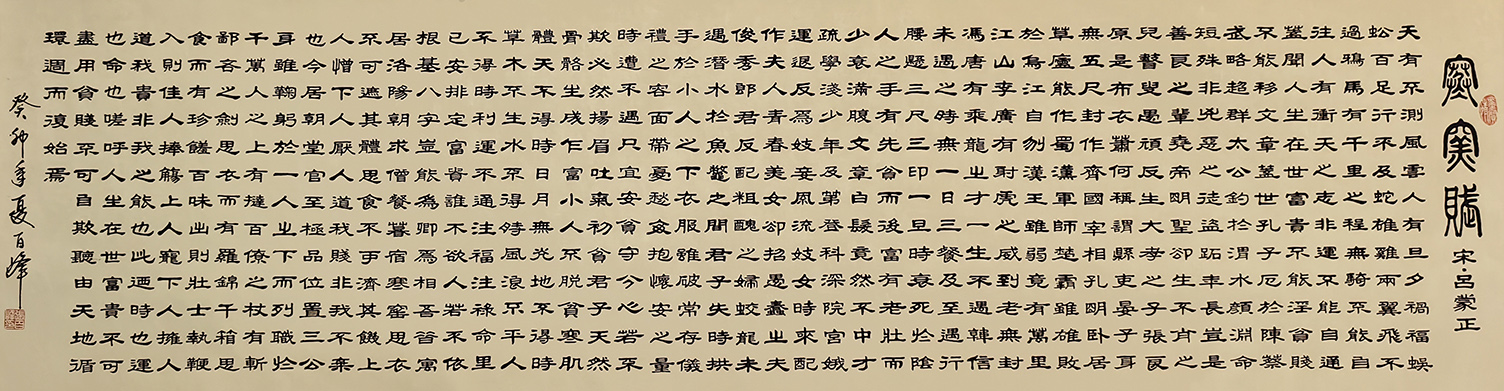 寒窯賦 宋·呂蒙正
天有不測風雲人有旦夕禍福蜈
蚣百足行不及蛇雄雞兩翼飛不
過鴉馬有千里之程無騎不能自
往人有衝天之志非運不能自通
蓋聞人生在世富貴不能淫貧賤
不能移文章蓋世孔子厄於陳蔡
武略超群太公釣於渭水顏淵命
短殊非兇惡之徒盜跖年長豈是
善良之輩堯帝明聖卻生不肖之
兒瞽叟愚頑反生大孝之子張良
原是布衣蕭何稱謂縣吏晏子身
無五尺封作齊國宰相孔明臥居
草廬能作蜀漢軍師楚霸雖雄敗
於烏江自刎漢王雖弱竟有萬里
江山李廣有射虎之威到老無封
馮唐有乘龍之才一生不遇韓信
未遇之時無一日三餐及至遇行
腰懸三尺三印一旦時衰死於陰
人之手有先貧而後富有老壯而
少衰滿腹文章白髮竟然不中才
疏學淺少年及第登科深院宮娥
運退反為妓妾風流妓女時來配
作夫人青春美女卻招愚蠢之夫
俊秀郎君反配粗醜之婦蛟龍未
遇潛水於魚鱉之間君子失時拱
手於小人之下衣服雖破常存儀
禮之容面帶憂愁每抱懷安之量
時遭不遇只宜安貧守分心若不
欺必然揚眉吐氣初貧君子天然
骨骼生成乍富小人不脫貧寒肌
體天不得時日月無光地不得時
草木不生水不得時風浪不平人
不得時利運不通注福注祿命里
已安排定富貴誰不欲人若不依
根基八字豈能為卿為相吾昔寓
居洛陽朝求僧餐暮宿寒窖思衣
不可遮其體思食不可濟其饑上
人憎下人厭人道我賤非我不棄
也今居朝堂官至極品位置三公
身雖鞠躬於一人之下而列職於
千萬人之上有撻百僚之杖有斬
鄙吝之劍思衣而有羅錦千箱思
食而有珍饈百味出則壯士執鞭
入則佳人捧觴上人寵下人擁人
道我貴非我之能也此迺時也運
也命也嗟呼人生在世富貴不可
盡用貧賤不可自欺聽由天地循
環週而復始焉
癸卯年夏百峰